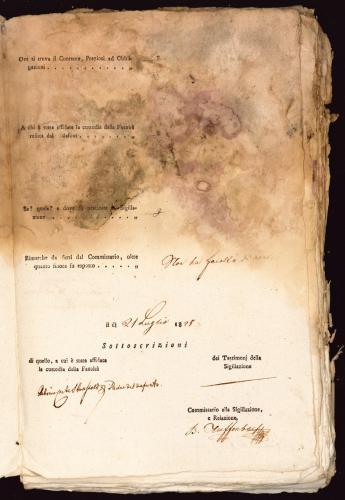 Ove si trova il Contante, Preziosi ed Obbli-
gazioni . . . . . . . . . . . „
A chi è stata affidata la custodia della Facoltà
relitta dal defunto . . . . . . . . . „
Se? quale? e dove
zione . . . . . . . . . . . „
Rimarche da farsi dal Commissario, oltre
quanto finora fu esposto . . . . . . „
Non ha facoltà di
li 21 Luglio 1828
Sottoscrizioni
di quello, a cui è stata affidata
la custodia della Facoltà
dei Testimonj della
Sigillazione
Padre del defunto
Commissario alla Sigillazione,
e Relazione,